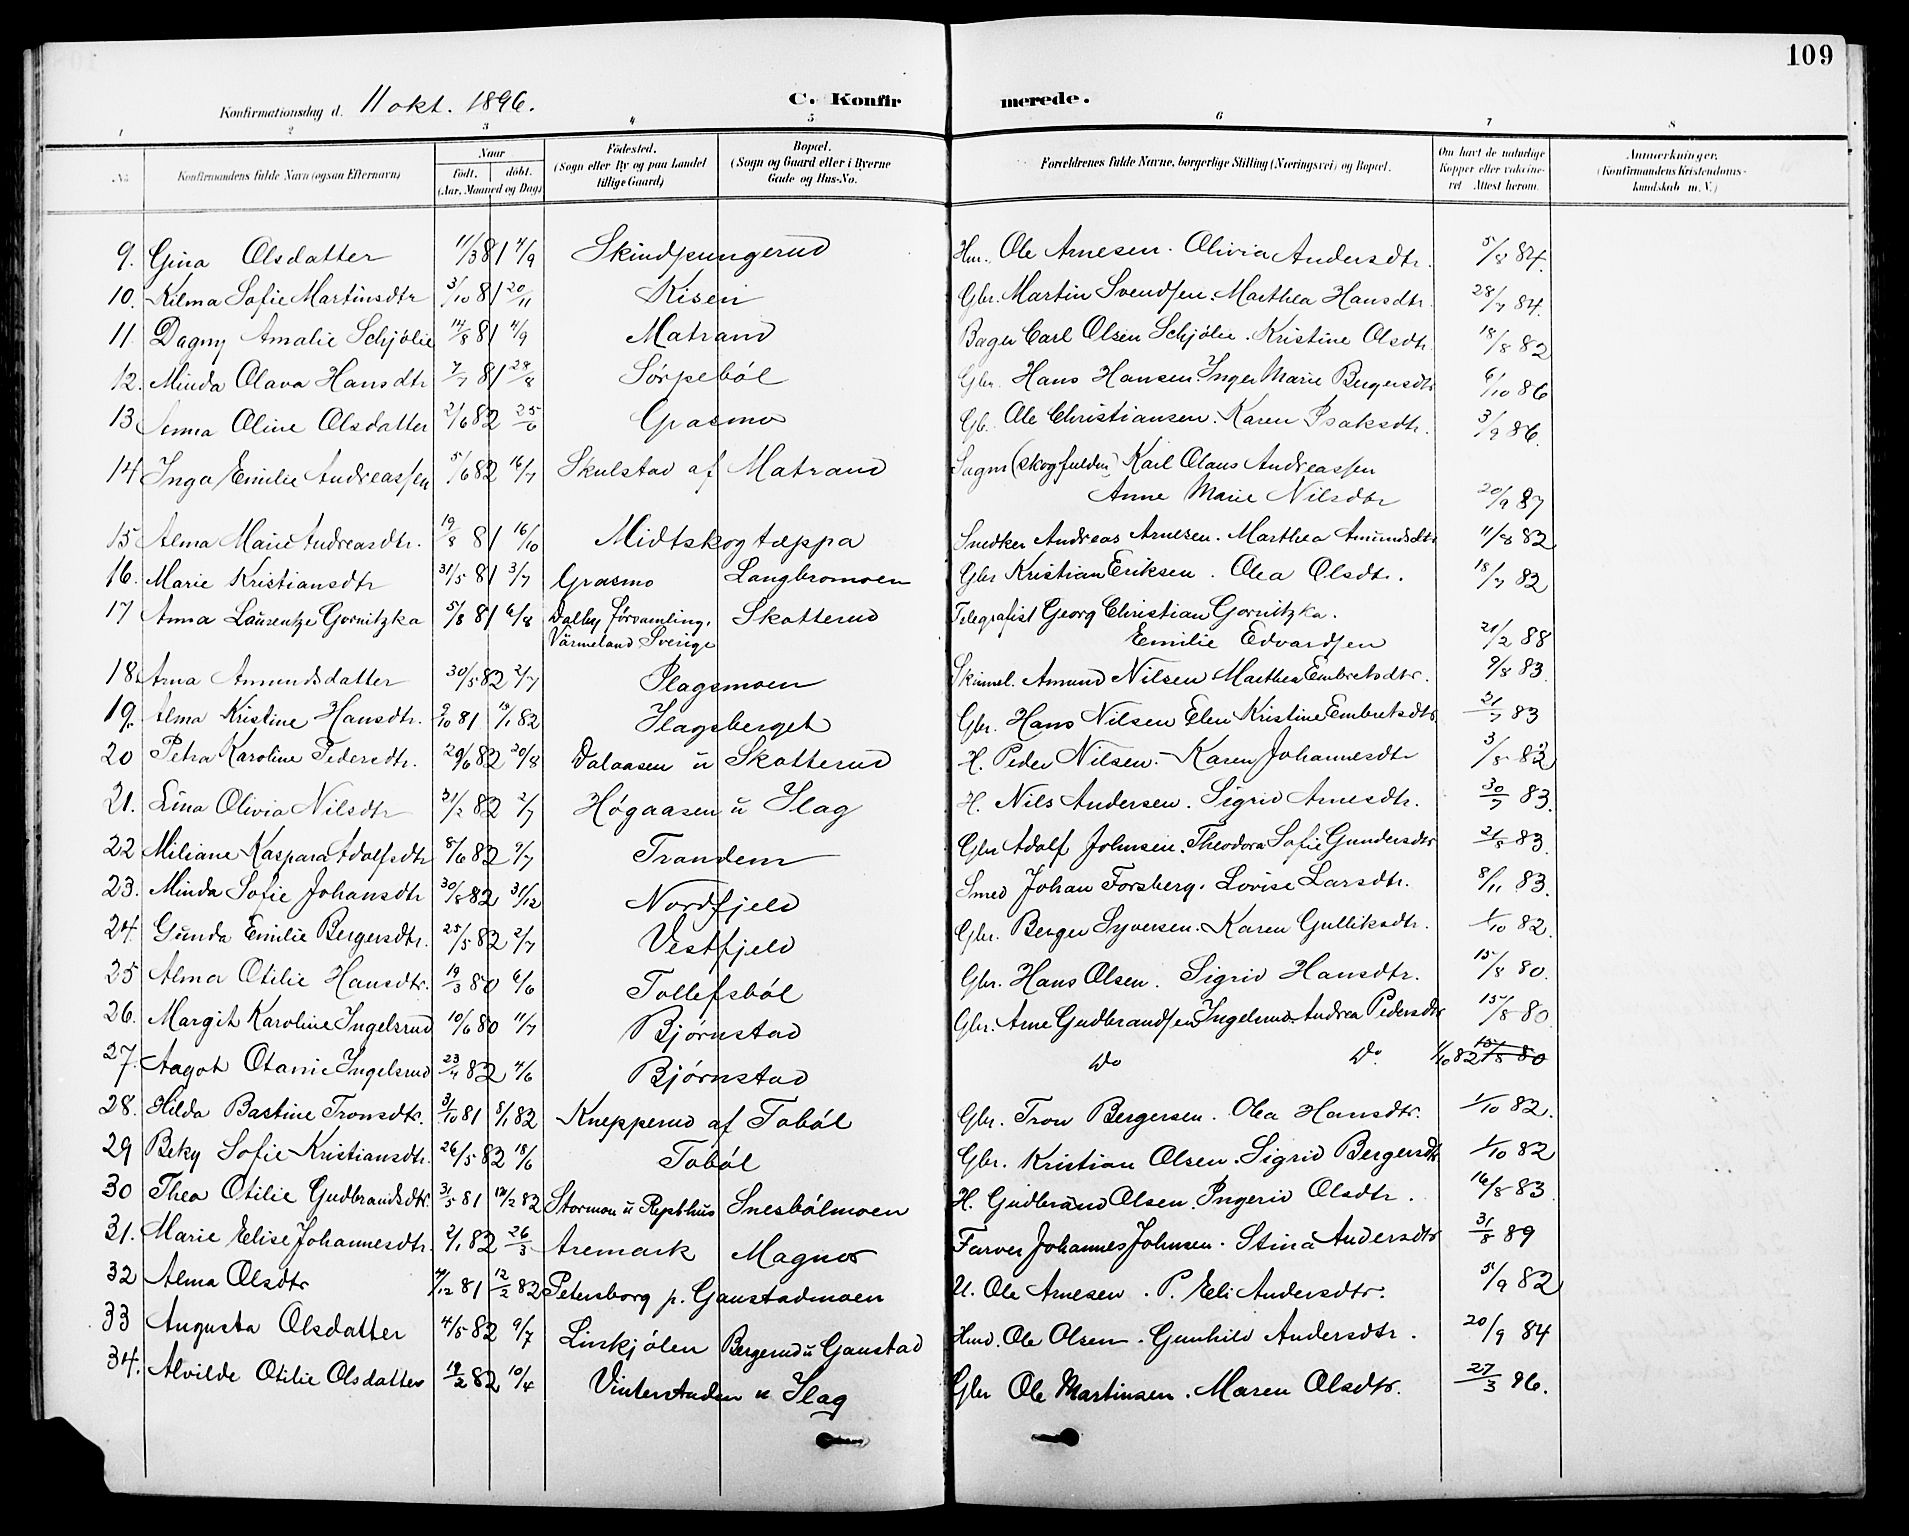 109
Konfirmationsdag d. 11 okt. 1896. C. Konfirmerede.
1 2 3 4 5 6 7 8
No. Konfirmandens fulde Navn (ogsaa Efternavn) Naar født. døbt. (Aar, Maaned og Dag) Fødested. (Sogn eller By og paa Landet tillige Gaard) Bopæl. (Sogn og Gaard eller i Byerne Gade og Hus-No. Forældrenes fulde Navne, borgerlige Stilling (Næringsvei) og Bopæl. Om havt de naturlige Kopper eller vaccineret Attest herom. Anmærkninger. (Konfirmandens Kristendomskundskab m. V.)
9. Gina Olsdatter 11/3 81 4/9 Skindpungerud Hm. Ole Arnesen. Olivia Andersdtr. 5/8 84.
10. Kilma Sofie Martinsdtr 3/10 81 20/11 Kisen Gbr. Martin Svendsen. Marthea Hansdtr. 28/7 84.
11. Dagny Amalie Schjølie 14/8 81 4/9 Matrand Bager Carl Olsen Schjølie. Kristine Olsdtr. 18/8 82
12. Minda Olava Hansdtr 7/7 81 28/8 Sørpebøl Gbr. Hans Hansen. Inger Marie Bergersdtr 6/10 86
13. Anna Oline Olsdatter 2/6 82 25/6 Grasmo Gb. Ole Christiansen. Karen Isaksdtr. 3/9 86.
14 Inga Emilie Andreassen 5/6 82 16/7 Skulstad af Matrand Sagm (skogfulden) Karl Olaus Andreassen
Anne Marie Nilsdtr 20/9 87
15. Alma Marie Andreasdtr. 19/8 81 16/10 Midtskogtæppa Snedker Andreas Arnesen. Marthea Amundsdtr 11/8 82
16. Marie Kristiansdtr 31/5 81 3/7 Grasmo Langbromoen Gbr Kristian Eriksen. Olea Olsdtr. 18/7 82
17 Anna Laurentze Gornitzka 5/8 81 6/8 Dalby församling, Skotterud Telegrafist Georg Christian Gornitzka.
Värmeland Sverige Emilie Edvardsen 21/2 88
18. Arna Amundsdatter 30/5 82 2/7 Slagsmoen Skimsl. Amund Nilsen Marthea Embretsdtr. 9/8 83.
19. Alma Kristine Hansdtr. 9/10 81 13/1 82 Slagsberget Gbr. Hans Nilsen Elen Kristine Embretsdtr 21/7 83
20 Petra Karoline Pedersdtr. 29/6 82 20/8 Dalaasen u Skotterud H. Peder Nilsen. Karen Johannesdtr 3/8 83
21. Lina Olivia Nilsdtr 21/2 82 2/7 Høgaasen u Slag H. Nils Andersen. Sigrid Arnesdtr. 30/7 83.
22 Miliane Kaspara Adolfsdtr 8/6 82 9/7 Trandem Gbr Adolf Johnsen. Theodora Sofie Gundersdtr 21/8 83.
23. Minda Sofie Johansdtr 30/8 82 31/12 Nordfjeld Smed Johan Forsberg. Lovise Larsdtr. 8/11 83.
24. Gunda Emilie Bergersdtr. 25/5 82 2/7 Vestfjeld Gbr. Berger Syversen. Karen Gulliksdtr. 1/10 82.
25 Alma Otilie Hansdtr. 19/3 80 6/6 Tollefsbøl Gbr. Hans Olsen. Sigrid Hansdtr. 15/8 80.
26. Margit Karoline Ingelsrud 10/6 80 11/7 Bjørnstad Gbr. Arne Gudbrandsen Ingelsrud. Andrea Pedersdtr 15/8 80.
27. Aagot Otanie Ingelsrud 23/4 82 4/6 Bjørnstad Do Do. 1/10 82 15/8 80
28. Hilda Bastine Tronsdtr. 31/10 81 8/1 82 Knepperud af Tobøl Gbr. Tron Bergersen. Olea Hansdtr. 1/10 82.
29 Beky Sofie Kristiansdtr. 26/5 82 18/6 Tobøl Gbr. Kristian Olsen. Sigrid Bergersdtr 1/10 82
30 Thea Otilie Gudbrandsdtr. 31/5 81 12/2 82 Stormoen u Rypthus Snesbølmoen H. Gudbrand Olsen. Ingerid Olsdtr. 16/8 83.
31. Marie Elise Johannesdtr. 2/1 82 26/3 Aremark Magnor Farver Johannes Johnsen. Stina Andersdtr 31/8 89
32 Alma Olsdtr 4/12 81 12/2 82 Petersborg p. Gaustadmoen U. Ole Arnesen. P. Eli Andersdtr. 5/9 82
33 Augusta Olsdatter 4/5 82 9/7 Linkjølen Bergerud u Gaustad Hmd. Ole Olsen. Gunhild Andersdtr. 20/9 84
34. Alvilde Otilie Olsdatter 19/2 82 10/4 Vinterstuden u Slag Gbr Ole Martinsen. Maren Olsdtr. 27/3 96.